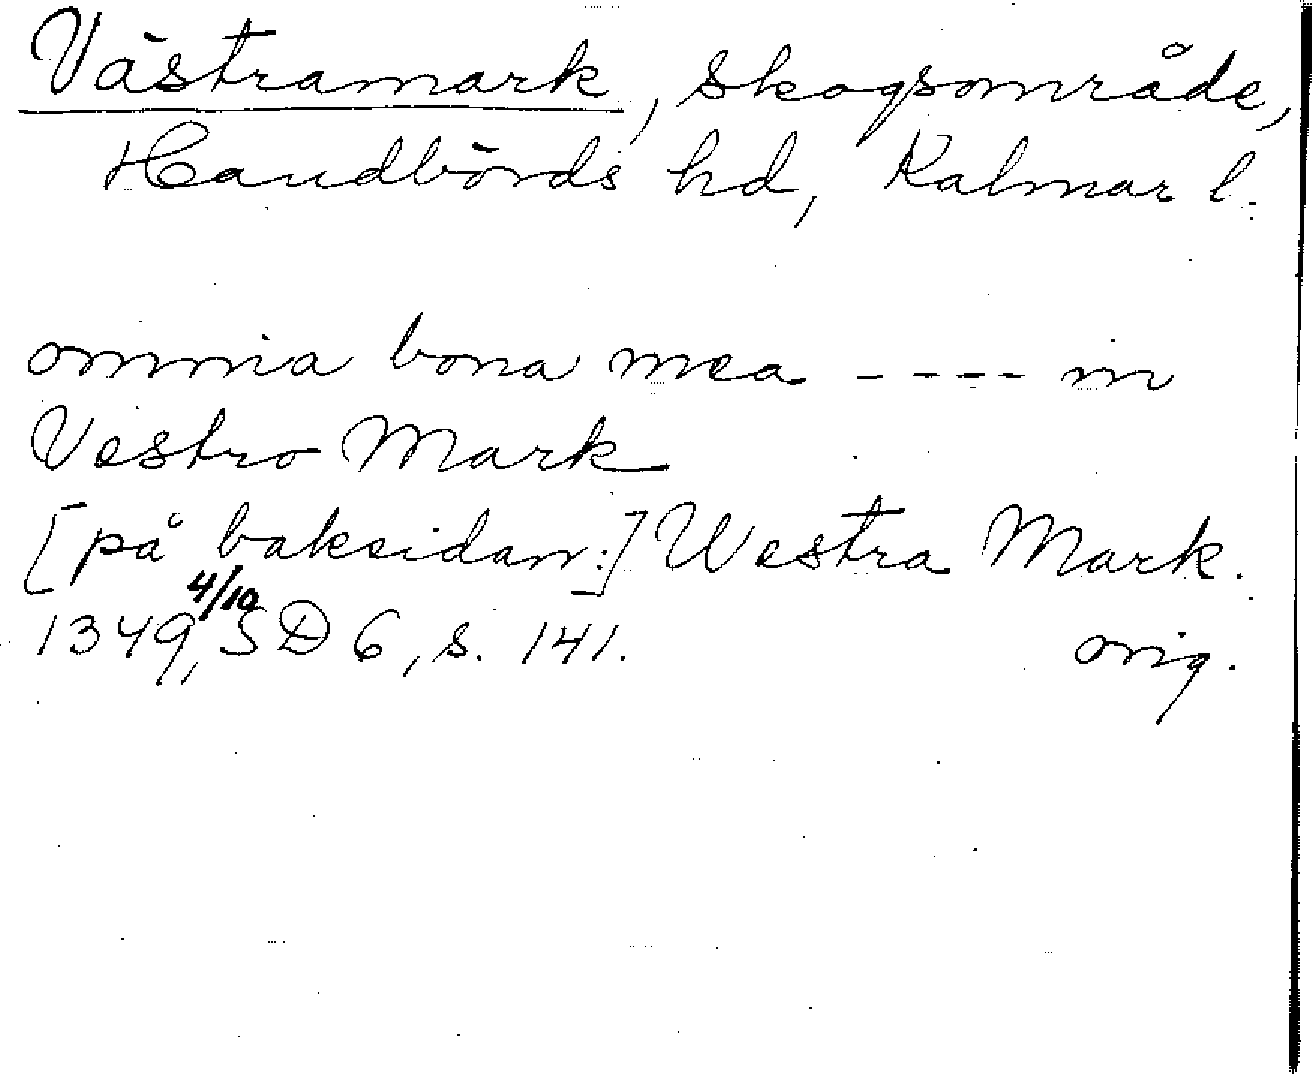 Västramark, skogsområde,
Handbörds hd, Kalmar l.
omnia bona mea ---- in
Vestro Mark
[på baksidan:] Westra Mark.
1349 4/10, SD 6, s. 141. orig.